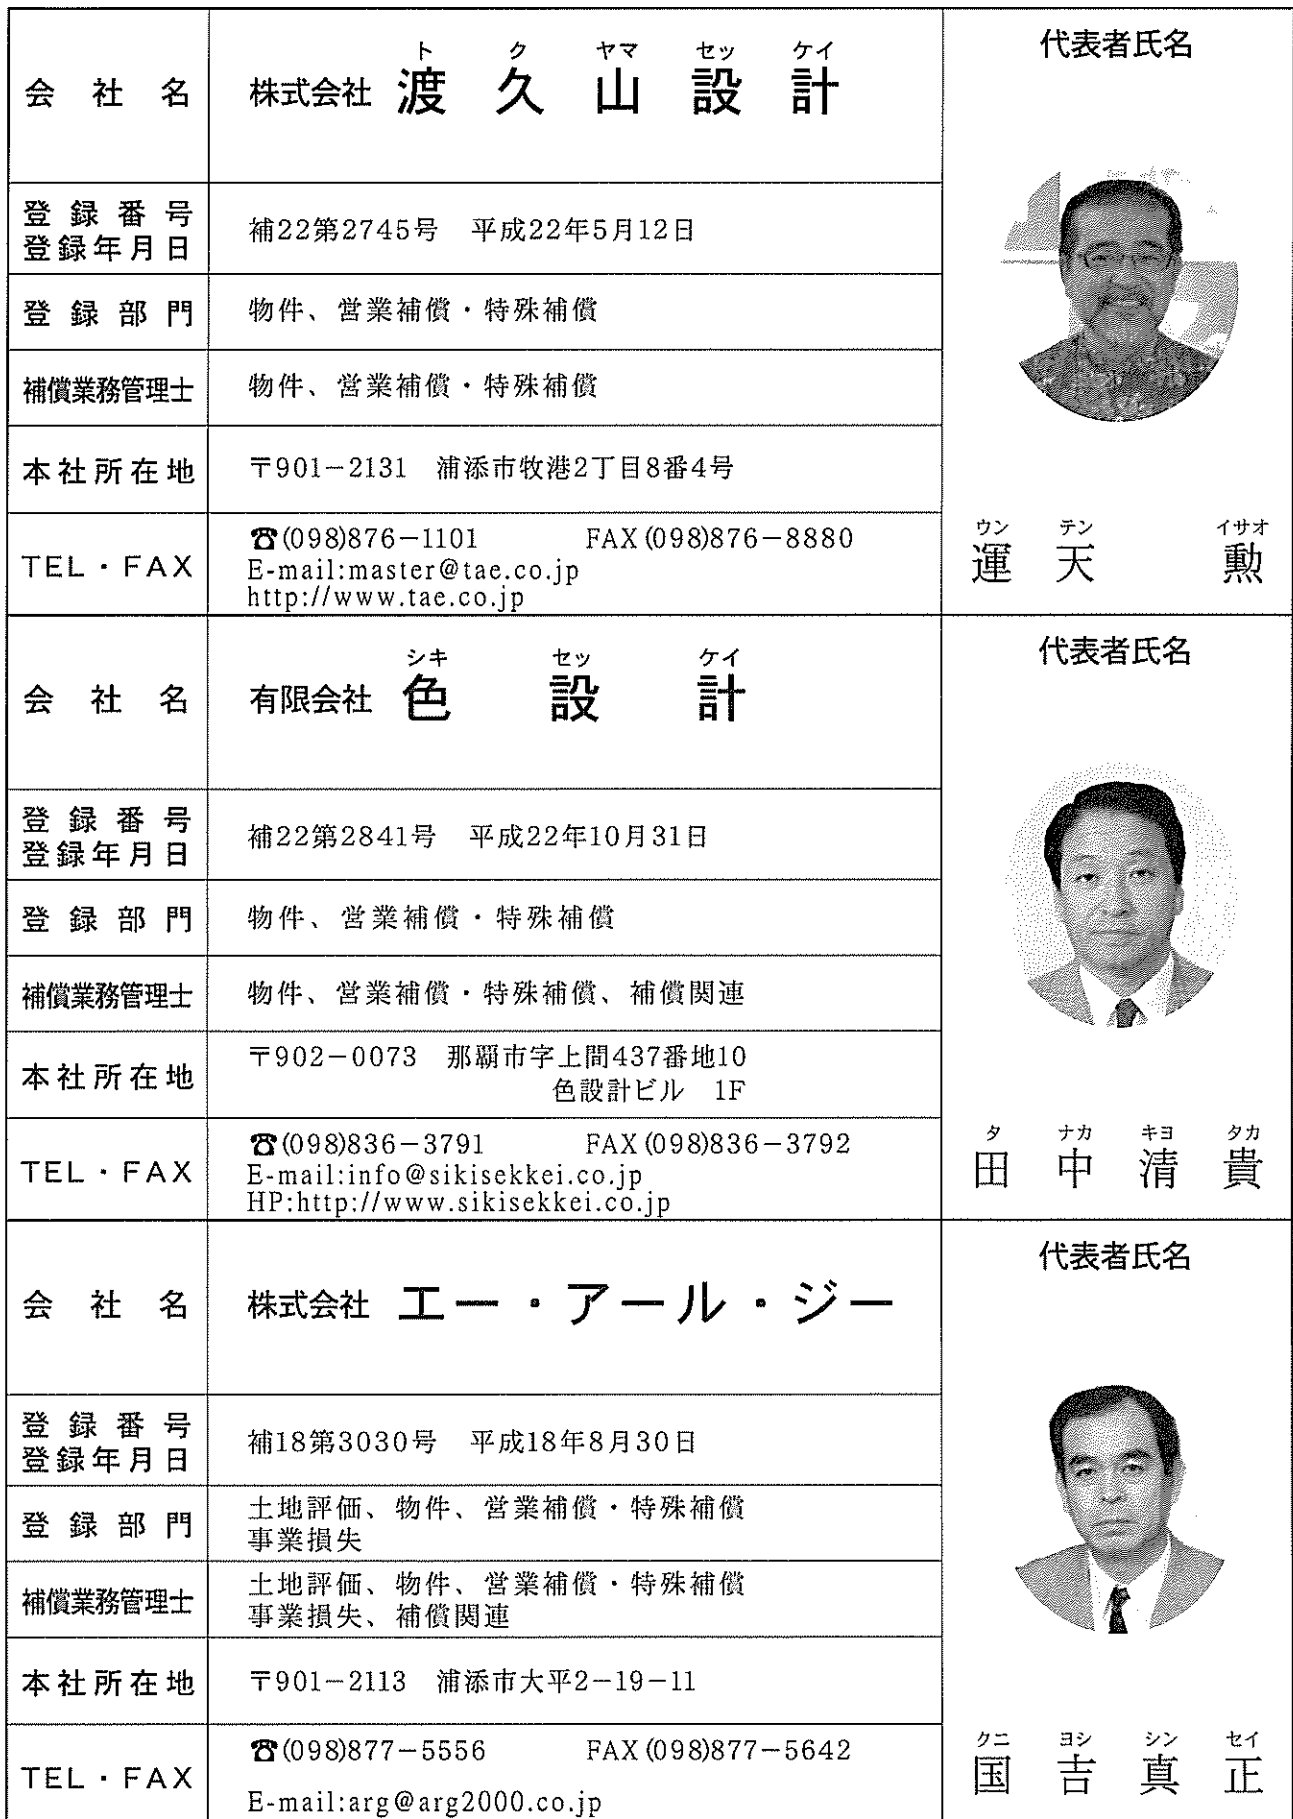 会社名
トクヤマセッケイ
株式会社 渡久山設計
登録番号
登録年月日
補22第2745号 平成22年5月12日
登録部門
物件、営業補償・特殊補償
補償業務管理士
物件、営業補償・特殊補償
本社所在地
〒901-2131 浦添市牧港2丁目8番4号
TEL・FAX
☎(098)876-1101 FAX(098)876-8880
E-mail:master@tae.co.jp
http://www.tae.co.jp
代表者氏名
ウン テン イサオ
運天 勲
会社名
シキ セッ ケイ
有限会社 色設計
登録番号
登録年月日
補22第2841号 平成22年10月31日
登録部門
物件、営業補償・特殊補償
補償業務管理士
物件、営業補償・特殊補償、補償関連
本社所在地
〒902-0073 那覇市字上間437番地10
色設計ビル 1F
TEL・FAX
☎(098)836-3791 FAX(098)836-3792
E-mail:info@sikisekkei.co.jp
HP:http://www.sikisekkei.co.jp
代表者氏名
タ ナカ キヨ タカ
田中清貴
会社名
株式会社 エー・アール・ジー
登録番号
登録年月日
補18第3030号 平成18年8月30日
登録部門
土地評価、物件、営業補償・特殊補償
事業損失
補償業務管理士
土地評価、物件、営業補償・特殊補償
事業損失、補償関連
本社所在地
〒901-2113 浦添市大平2-19-11
TEL・FAX
☎(098)877-5556 FAX(098)877-5642
E-mail:arg@arg2000.co.jp
代表者氏名
クニ ヨシ シン セイ
国吉真正